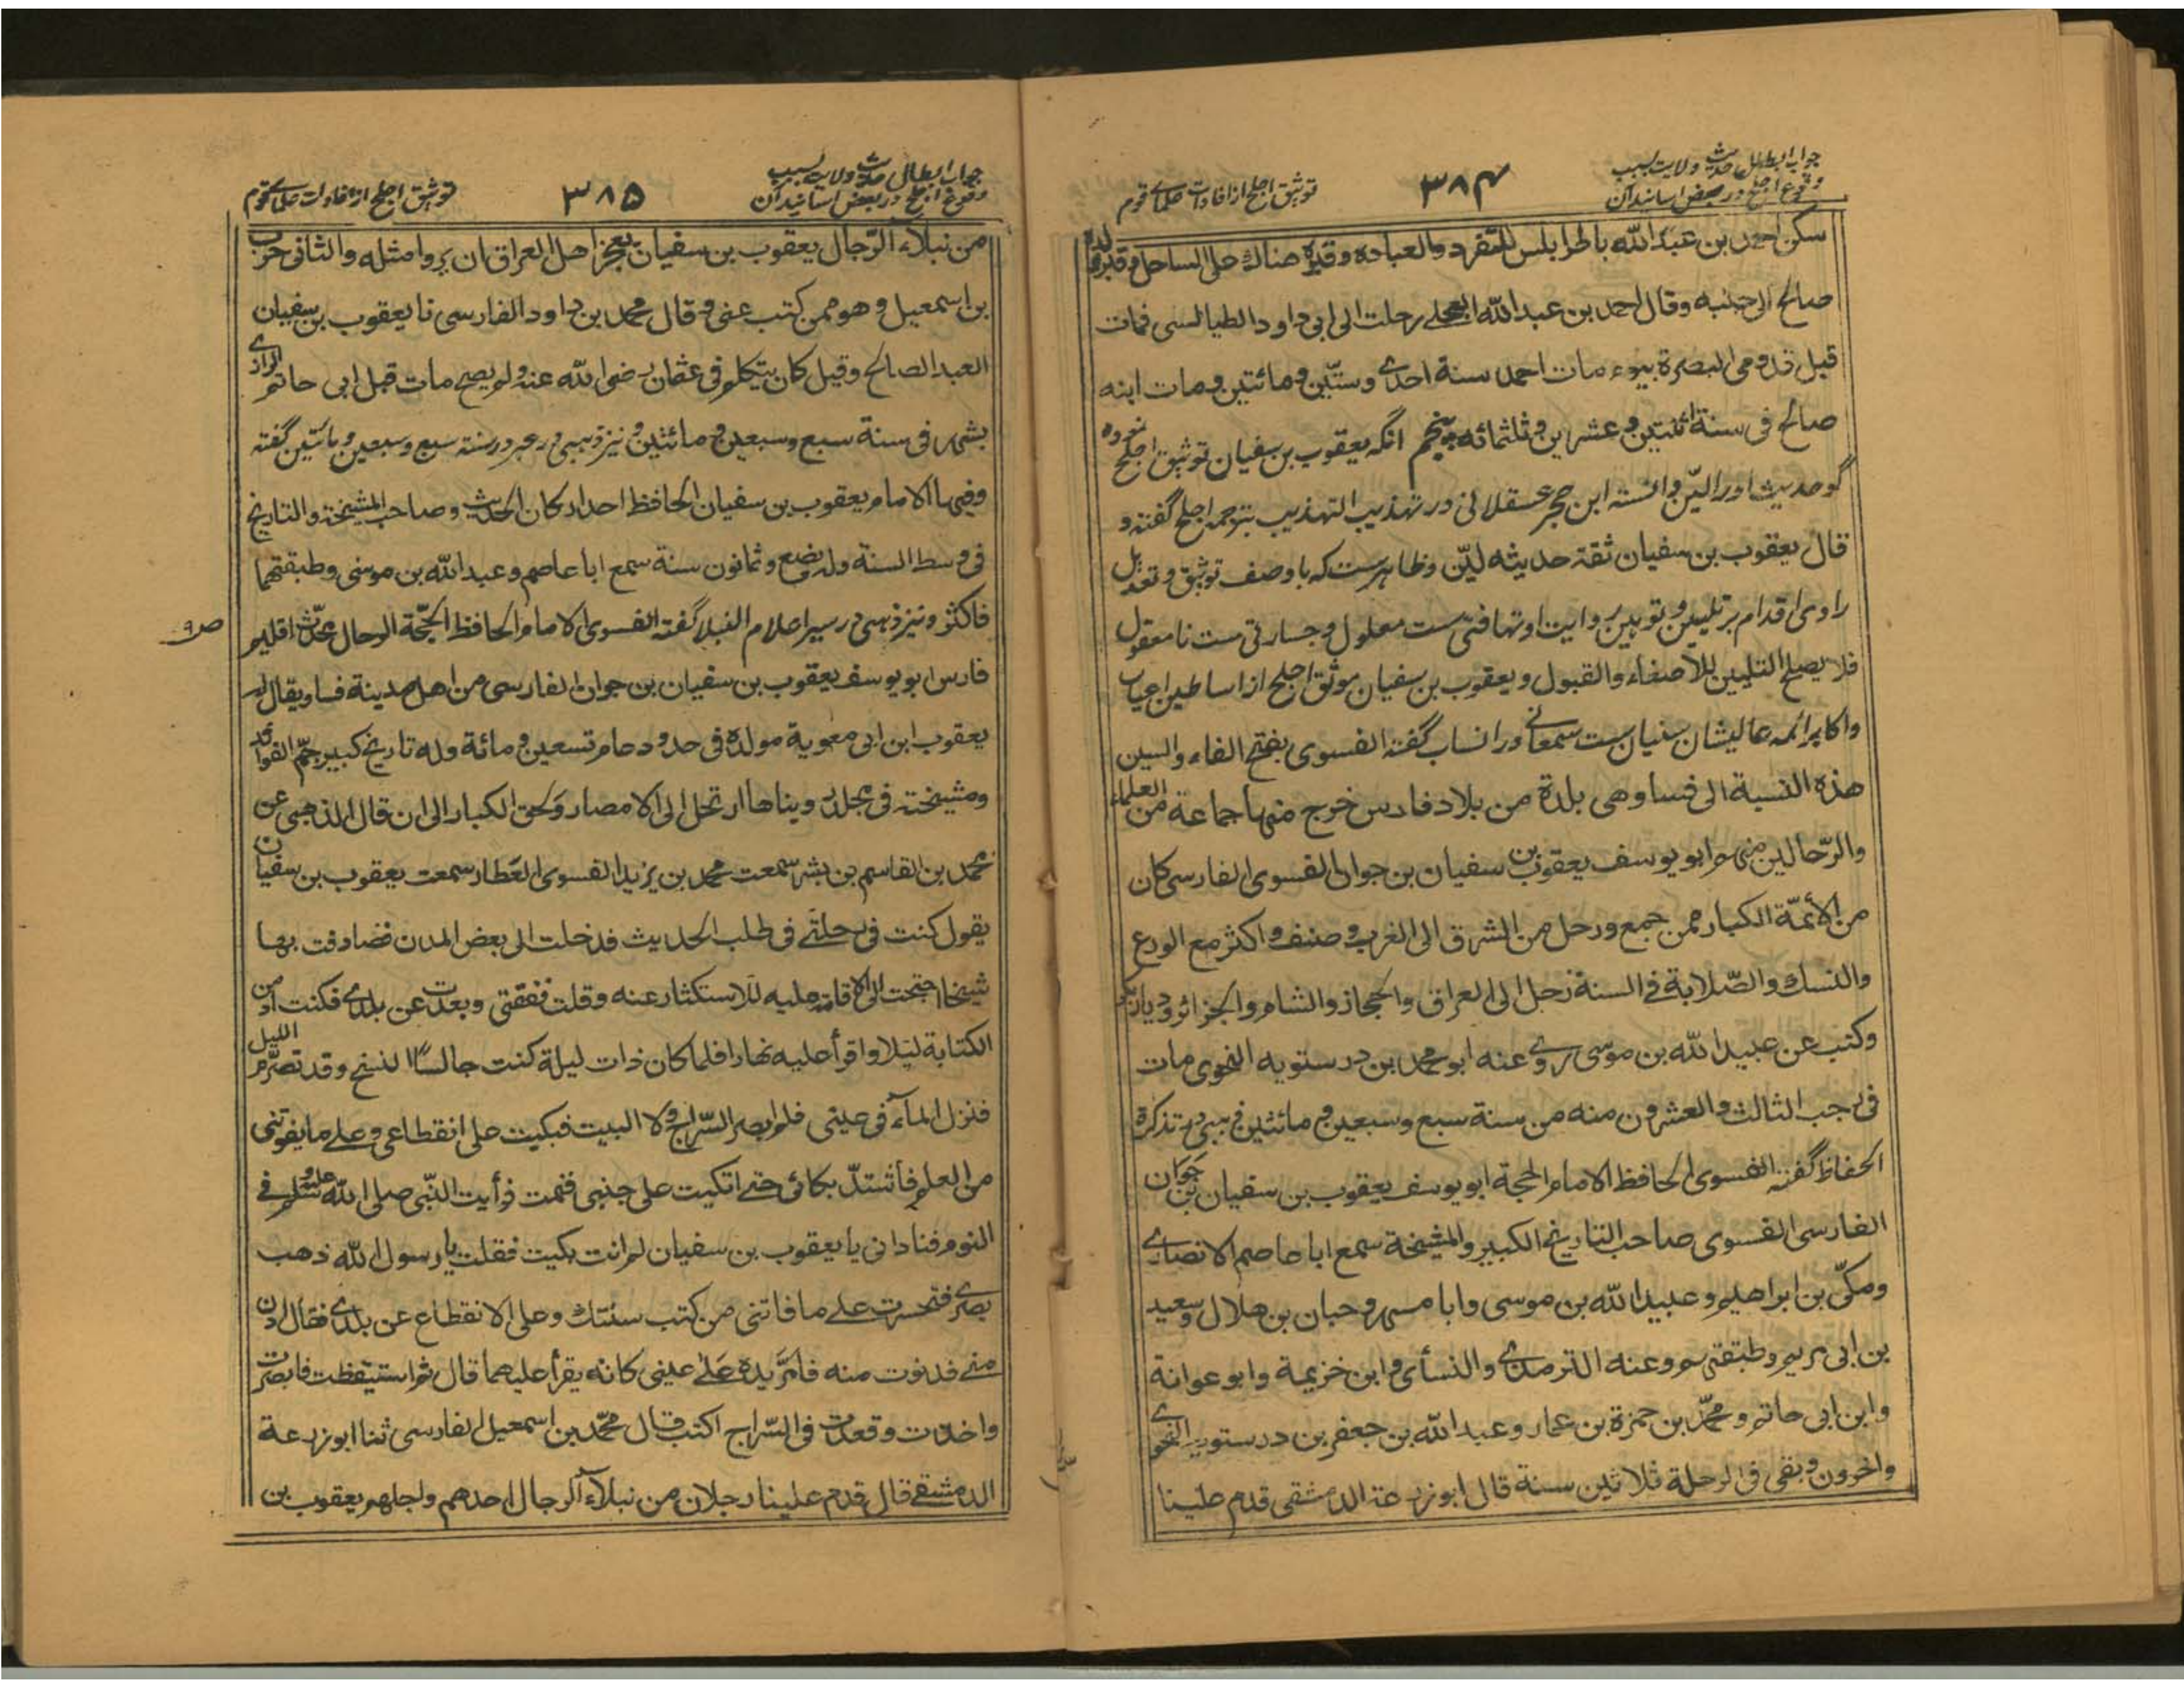 جواب ابطال حدیث ولایت بسبب
وقوع اجلح در بعض اسانید آن
۳۸۴
توثیق اجلح از افادات علمای قوم
سکن احمد بن عبد الله باطرابلس للتفرد والعبادة وقبره هناك على الساحل وقبر ولده
صالح الى جنبه وقال احمد بن عبد الله العجلى رحلت الى ابى داود الطيالسى فمات
قبل قدومى البصرة بيوم مات احمد سنة احدى وستّين ومائتين ومات ابنه
صالح فى سنة اثنتين وعشرين وثلثمائه پنجم انکه یعقوب بن سفیان توثیق اجلح نموده
گو حدیث او را لیّن دانسته ابن حجر عسقلانی در تهذیب التهذیب بترجمه اجلح گفته و
قال يعقوب بن سفيان ثقة حديثه ليّن وظاهرست که با وصف توثیق و تعدیل
راوی اقدام بر تلیین و توهین روایت او تهافتی ست معلول و جسارتی ست نامعقول
فلا يصلح التليين للاصغاء والقبول ویعقوب بن سفیان موثق اجلح از اساطین اعیان
واکابر ائمه عالیشان سنیان ست سمعانی در انساب گفته الفسوى بفتح الفاء والسين
هذه النسبة الى فسا وهى بلدة من بلاد فارس خرج منها جماعة من العلماء
والرّحالين منهم ابو يوسف يعقوب بن سفيان بن جوان الفسوى الفارسى كان
من الأئمّة الكبار ممن جمع ورحل من الشرق الى الغرب وصنف واكثر مع الورع
والنسك والصّلابة فى السنة رحل الى العراق والحجاز والشام والجزائر وديار
وكتب عن عبيد الله بن موسى روى عنه ابو محمد بن درستويه النحوى مات
فى رجب الثالث والعشرون منه من سنة سبع وسبعين ومائتين ذهبی در تذکرة
الحفاظ گفته الفسوى الحافظ الامام الحجة ابو يوسف يعقوب بن سفيان بن جَوان
الفارسى الفسوى صاحب التاريخ الكبير والمشيخة سمع ابا عاصم الانصارى
ومكّى بن ابراهيم وعبيد الله بن موسى وابا مسهر وحبان بن هلال وسعيد
بن ابى مريم وطبقتهم وعنه الترمذى والنسأى وابن خزيمة وابو عوانة
وابن ابى حاتم ومحمّد بن حمزة بن عمار وعبد الله بن جعفر بن درستويه النحوى
واخرون وبقى فى الرحلة ثلاثين سنة قال ابو زرعة الدمشقى قدم علينا
جواب ابطال حدیث ولایت بسبب
وقوع اجلح در بعض اسانید آن
۳۸۵
توثیق اجلح از افادات علمای قوم
من نبلاء الرّجال يعقوب بن سفيان يعجز اهل العراق ان يروا مثله والثانى حرب
بن اسمعيل وهو ممن كتب عنى وقال محمد بن داود الفارسى نا يعقوب بن سفيان
العبد الصالح وقيل كان يتكلم فى عثمان رضى الله عنه ولم يصح مات قبل ابى حاتم الرازى
بشهر فى سنة سبع وسبعين ومائتين ونیز ذهبی در عبر در سنه سبع وسبعین ومائتین گفته
وفيها الامام يعقوب بن سفيان الحافظ احد اركان الحديث وصاحب المشيخة والتاريخ
فى وسط السنة وله بضع وثمانون سنة سمع ابا عاصم وعبد الله بن موسى وطبقتهما
فاكثر ونیز ذهبی در سیر اعلام النبلا گفته الفسوى الامام الحافظ الحجّة الرحال محدّث اقليم
فارس ابو يوسف يعقوب بن سفيان بن جوان الفارسى من اهل مدينة فسا ويقال له
يعقوب ابن ابى معوية مولده فى حدود عام تسعين ومائة وله تاريخ كبير جمّ الفوائد
ومشيخته فى مجلد ويناها ارتحل الى الامصار ولحق الكبار الى ان قال الذهبى عن
محمد بن القاسم بن بشر سمعت محمد بن يزيد الفسوى العَطار سمعت يعقوب بن سفيان
يقول كنت فى رحلتى فى طلب الحديث فدخلت الى بعض المدن فصادفت بها
شيخا احتجت الى الاقامة عليه للاستكثار عنه وقلت نفقتى وبعدت عن بلدى فكنت ادمن
الكتابة ليلا واقرأ عليه نهارا فلما كان ذات ليلة كنت جالسًا انسخ وقد تصرّم الليل
فنزل المآء فى عينى فلم ابصر السّراج ولا البيت فبكيت على انقطاعى وعلى ما يفوتنى
من العلم فاشتدّ بكائى حتى اتكيت على جنبى فنمت فرأيت النّبى صلى الله عليه وسلم فى
النوم فنادانى يا يعقوب بن سفيان لم انت بكيت فقلت يا رسول الله ذهب
بصرى فتحسرت على ما فاتنى من كتب سنتك وعلى الانقطاع عن بلدى فقال ادن
منى فدنوت منه فامرّ يده عَلى عينى كانه يقرأ عليهما قال ثم استيقظت فابصرت
واخذت وقعدت فى السّراج اكتب قال محمّد بن اسمعيل الفارسى ثنا ابو زرعة
الدمشقى قال قدم علينا رجلان من نبلاء الرجال احدهم واجلهم يعقوب بن